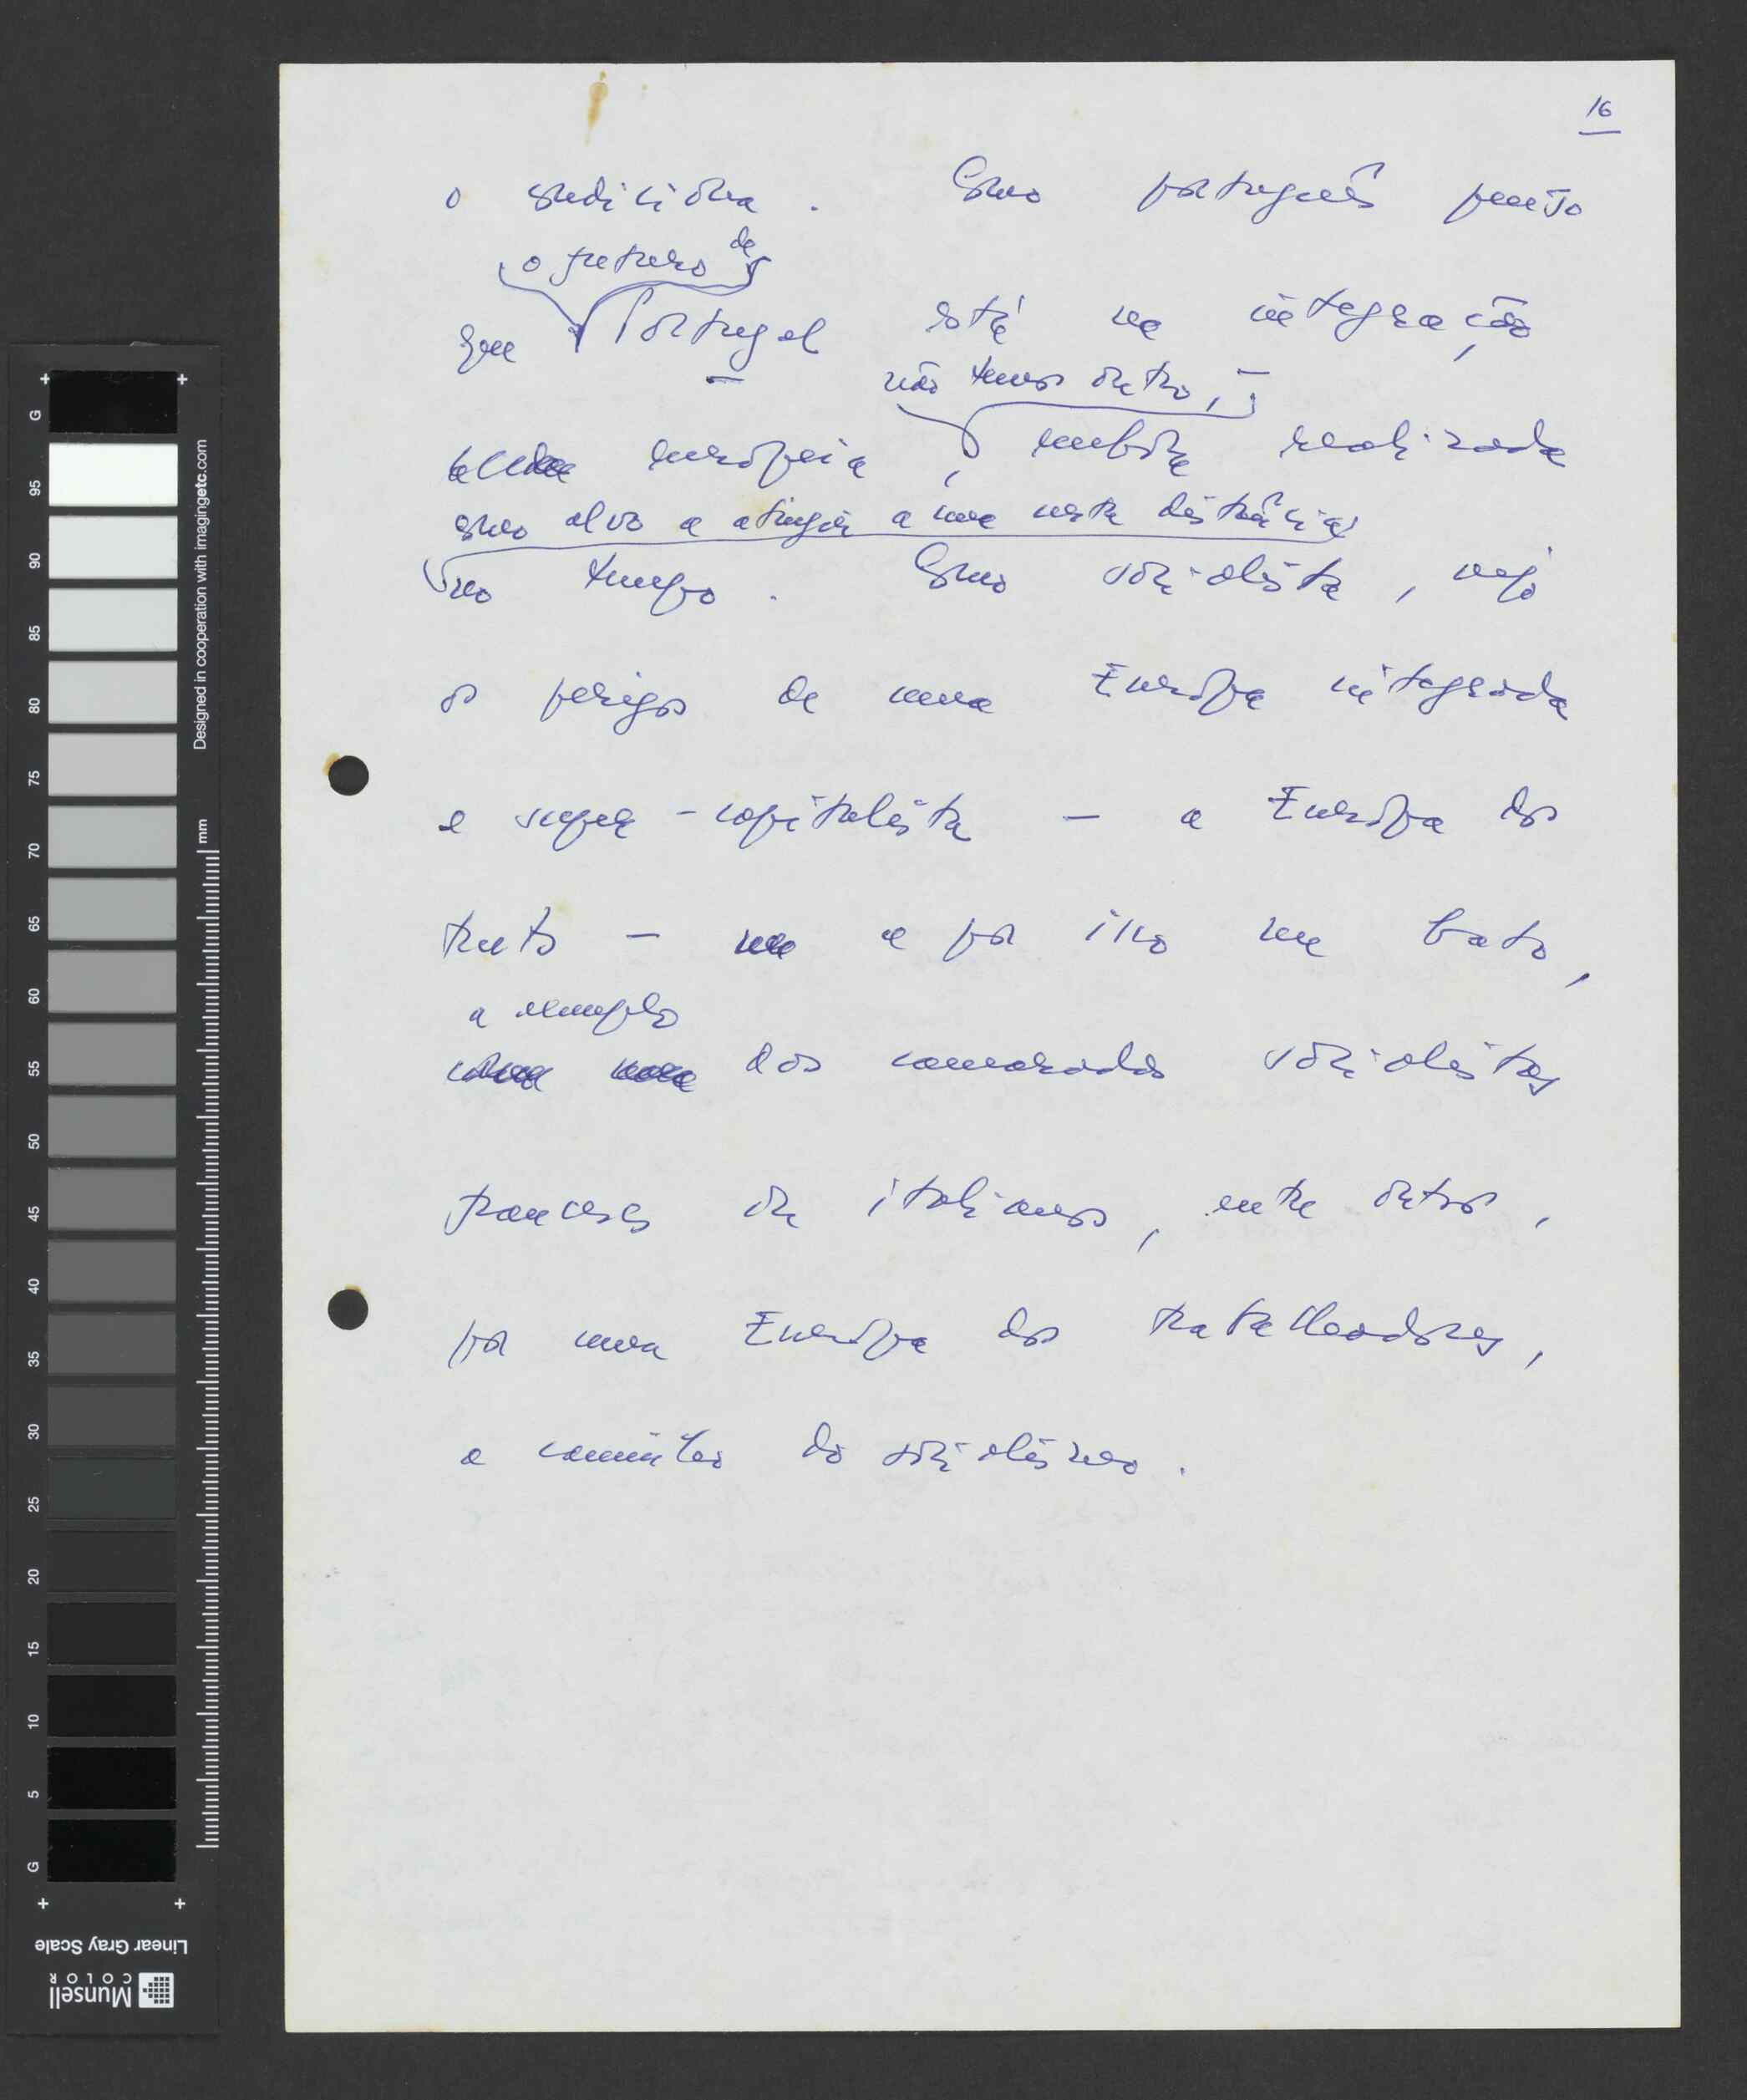 16
o condiciona. Como português penso
o futuro de
que Portugal está na integração
não temos outro,
europeia, embora realizada
como alvo a atingir a uma certa distância
no tempo. Como socialista, vejo
os perigos de uma Europa integrada
e super-capitalista — a Europa dos
trusts — e por isso me bato,
a exemplo
dos camaradas socialistas
franceses ou italianos, entre outros,
por uma Europa dos trabalhadores,
a caminho do socialismo.
G
95
90
85
80
75
70
65
60
55
50
45
40
35
30
25
20
15
10
5
G
mm
Designed in cooperation with imagingetc.com
Linear Gray Scale
Munsell
COLOR